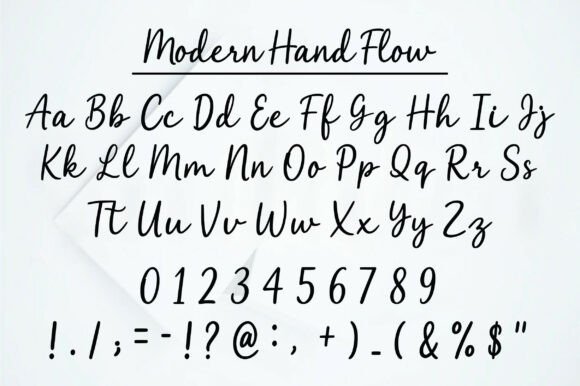 Modern Hand Flow
Aa Bb Cc Dd Ee Ff Gg Hh Ii Jj
Kk Ll Mm Nn Oo Pp Qq Rr Ss
Tt Uu Vv Ww Xx Yy Zz
0 1 2 3 4 5 6 7 8 9
! . / ; = - ! ? @ : , + ) _ ( & % $ "